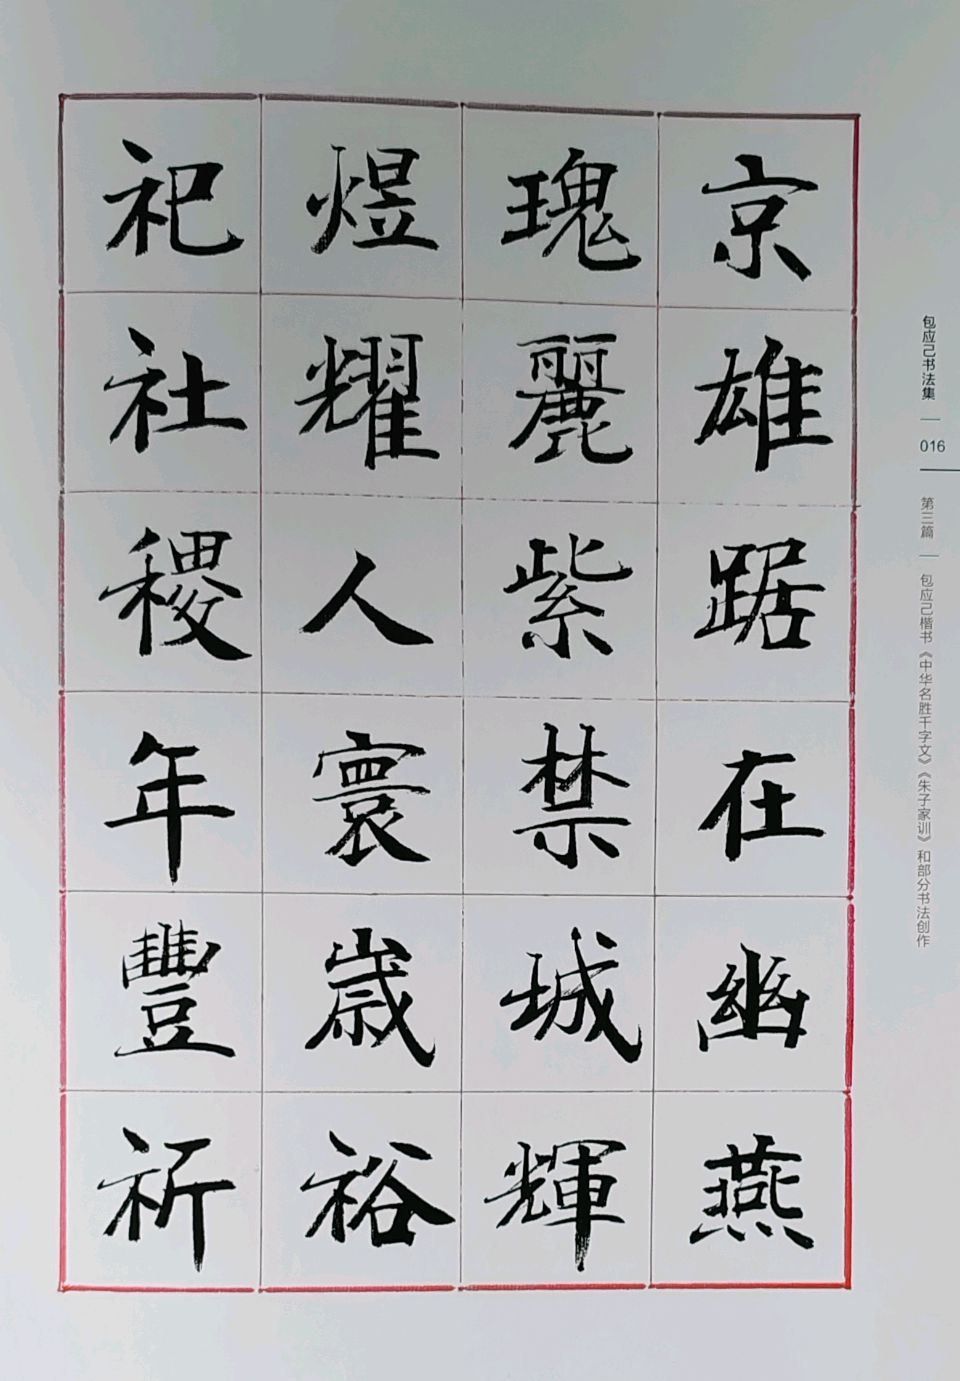 京雄踞在幽燕
瑰麗紫禁城輝
煜耀人寰歲裕
祀社稷年豐祈
包应己书法集
016
第三篇
包应己楷书《中华名胜千字文》《朱子家训》和部分书法创作